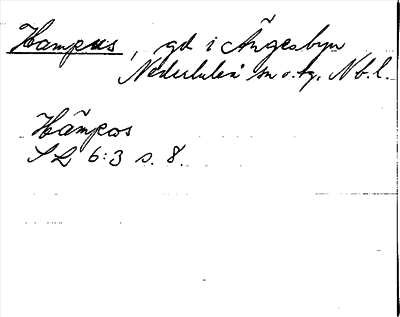 Hampus, gd i Ängesbyn
Nederluleå sn o. tg, Nb. l.
Hãmpos
SL 6:3 s. 8.